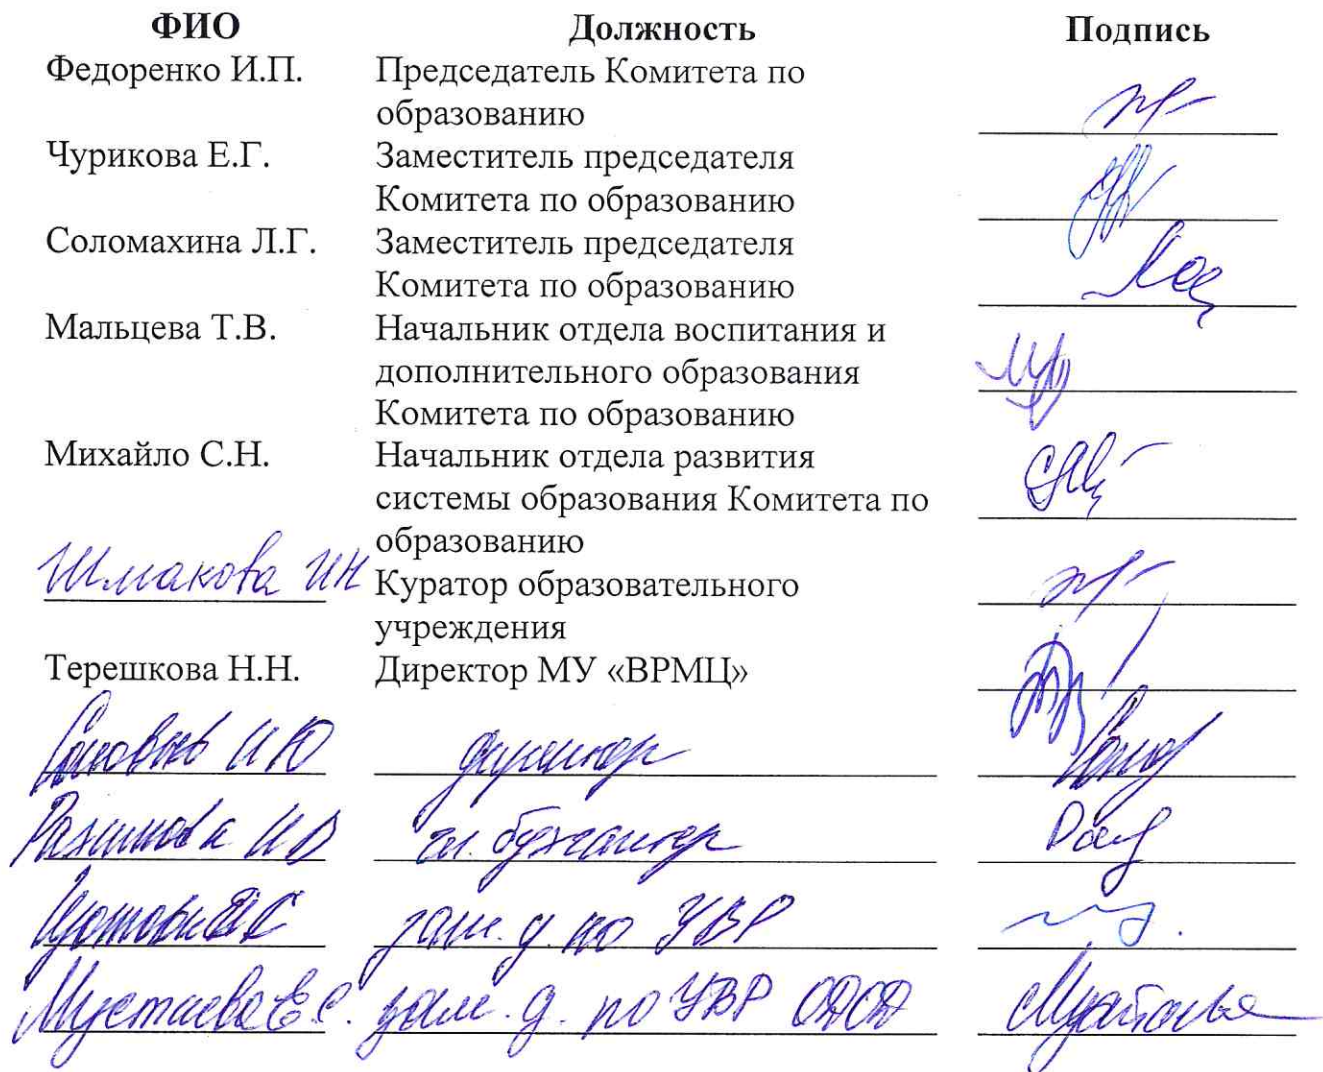 ФИО Должность Подпись
Федоренко И.П. Председатель Комитета по
образованию
Чурикова Е.Г. Заместитель председателя
Комитета по образованию
Соломахина Л.Г. Заместитель председателя
Комитета по образованию
Мальцева Т.В. Начальник отдела воспитания и
дополнительного образования
Комитета по образованию
Михайло С.Н. Начальник отдела развития
системы образования Комитета по
образованию
Шмакова ИН Куратор образовательного
учреждения
Терешкова Н.Н. Директор МУ «ВРМЦ»
И Ю директор
И В гл. бухгалтер
зам. д. по УВР
Мустаева Е.С. зам. д. по УВР ОДОД